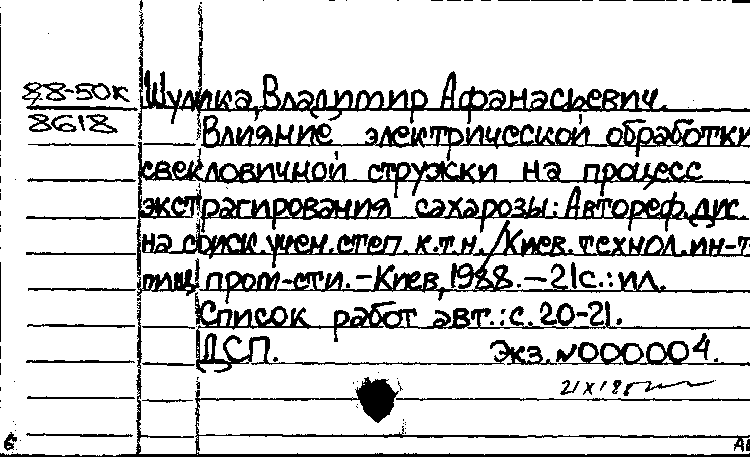 88-50к Шулика, Владимир Афанасьевич.
8618 Влияние электрической обработки
свекловичной стружки на процесс
экстрагирования сахарозы: Автореф. дис.
на соиск. учен. степ. к.т.н. / Киев. технол. ин-т
пищ. пром-сти. – Киев, 1988. – 21с.: ил.
Список работ авт.: с. 20-21.
ДСП. Экз. №000004.
б